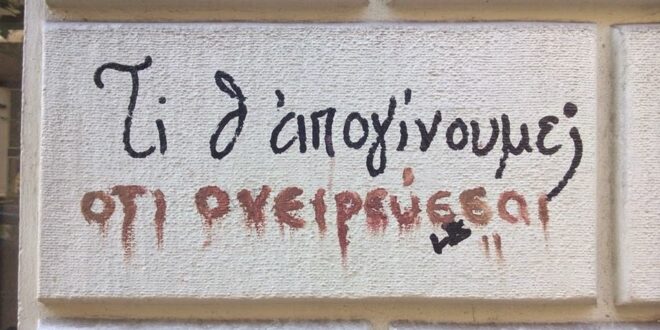 Τι θ' απογίνουμε;
οτι ονειρεύεσαι